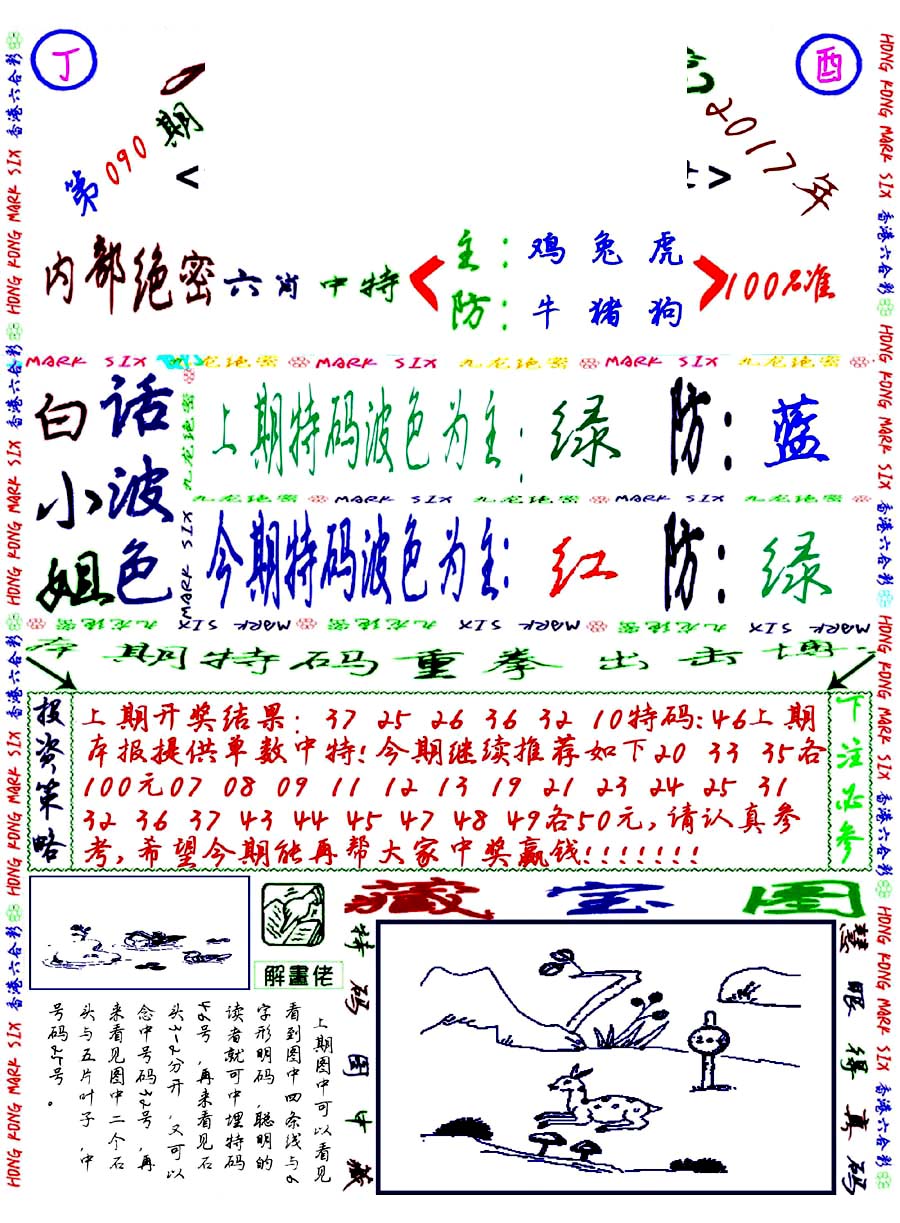 丁
酉
第090期
2017年
内部绝密六肖中特
主：鸡兔虎
防：牛猪狗
100%准
MARK SIX 九龙绝密 MARK SIX 九龙绝密 MARK SIX 九龙绝密
白小姐
话波色
上期特码波色为主：绿 防：蓝
九龙绝密 MARK SIX 九龙绝密 MARK SIX 九龙绝密
今期特码波色为主：红 防：绿
九龙绝密 MARK SIX 九龙绝密 MARK SIX 九龙绝密 MARK SIX
本期特码重拳出击博
投资策略
上期开奖结果：37 25 26 36 32 10特码：46上期
本报提供单数中特！今期继续推荐如下20 33 35各
100元07 08 09 11 12 13 19 21 23 24 25 31
32 36 37 43 44 45 47 48 49各50元，请认真参
考，希望今期能再帮大家中奖赢钱！！！！！！！
下注必参
藏宝图
解畫佬
上期图中可以看见
看到图中四条线与6
字形明码，聪明的
读者就可中埋特码
46号，再来看见石
头3-2分开，又可以
念中号码32号，再
来看见图中二个石
头与五片叶子，中
号码25号。
特码图中藏
慧眼得真码
HONG KONG MARK SIX 香港六合彩 HONG KONG MARK SIX 香港六合彩 HONG KONG MARK SIX 香港六合彩 HONG KONG MARK SIX 香港六合彩
HONG KONG MARK SIX 香港六合彩 HONG KONG MARK SIX 香港六合彩 HONG KONG MARK SIX 香港六合彩 HONG KONG MARK SIX 香港六合彩